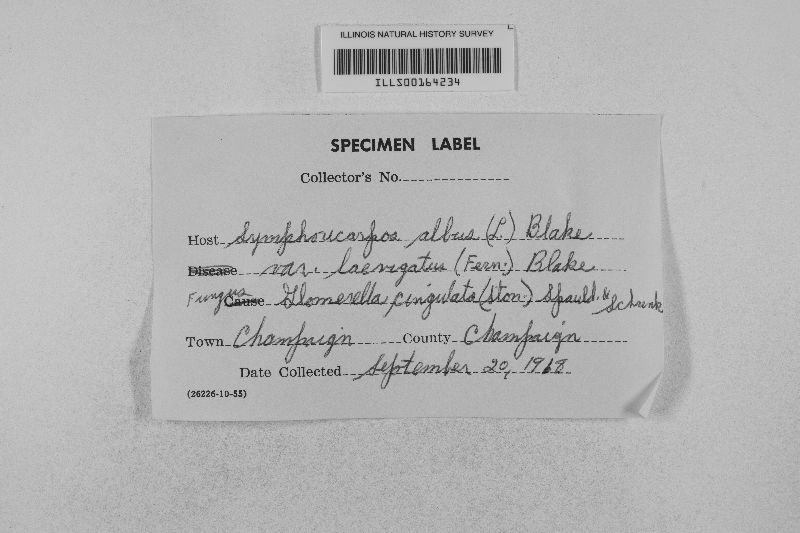 ILLINOIS NATURAL HISTORY SURVEY
ILLS00164234
SPECIMEN LABEL
Collector's No.
Host Symphoricarpos albus (L.) Blake
Disease var. laevigatus (Fern.) Blake
Fungus Cause Glomerella cingulata (Ston.) Spauld. & Schrenk
Town Champaign County Champaign
Date Collected September 20, 1968
(26226-10-55)